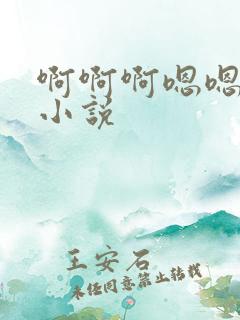 啊啊啊嗯嗯
小说
王安石
未经同意禁止转载